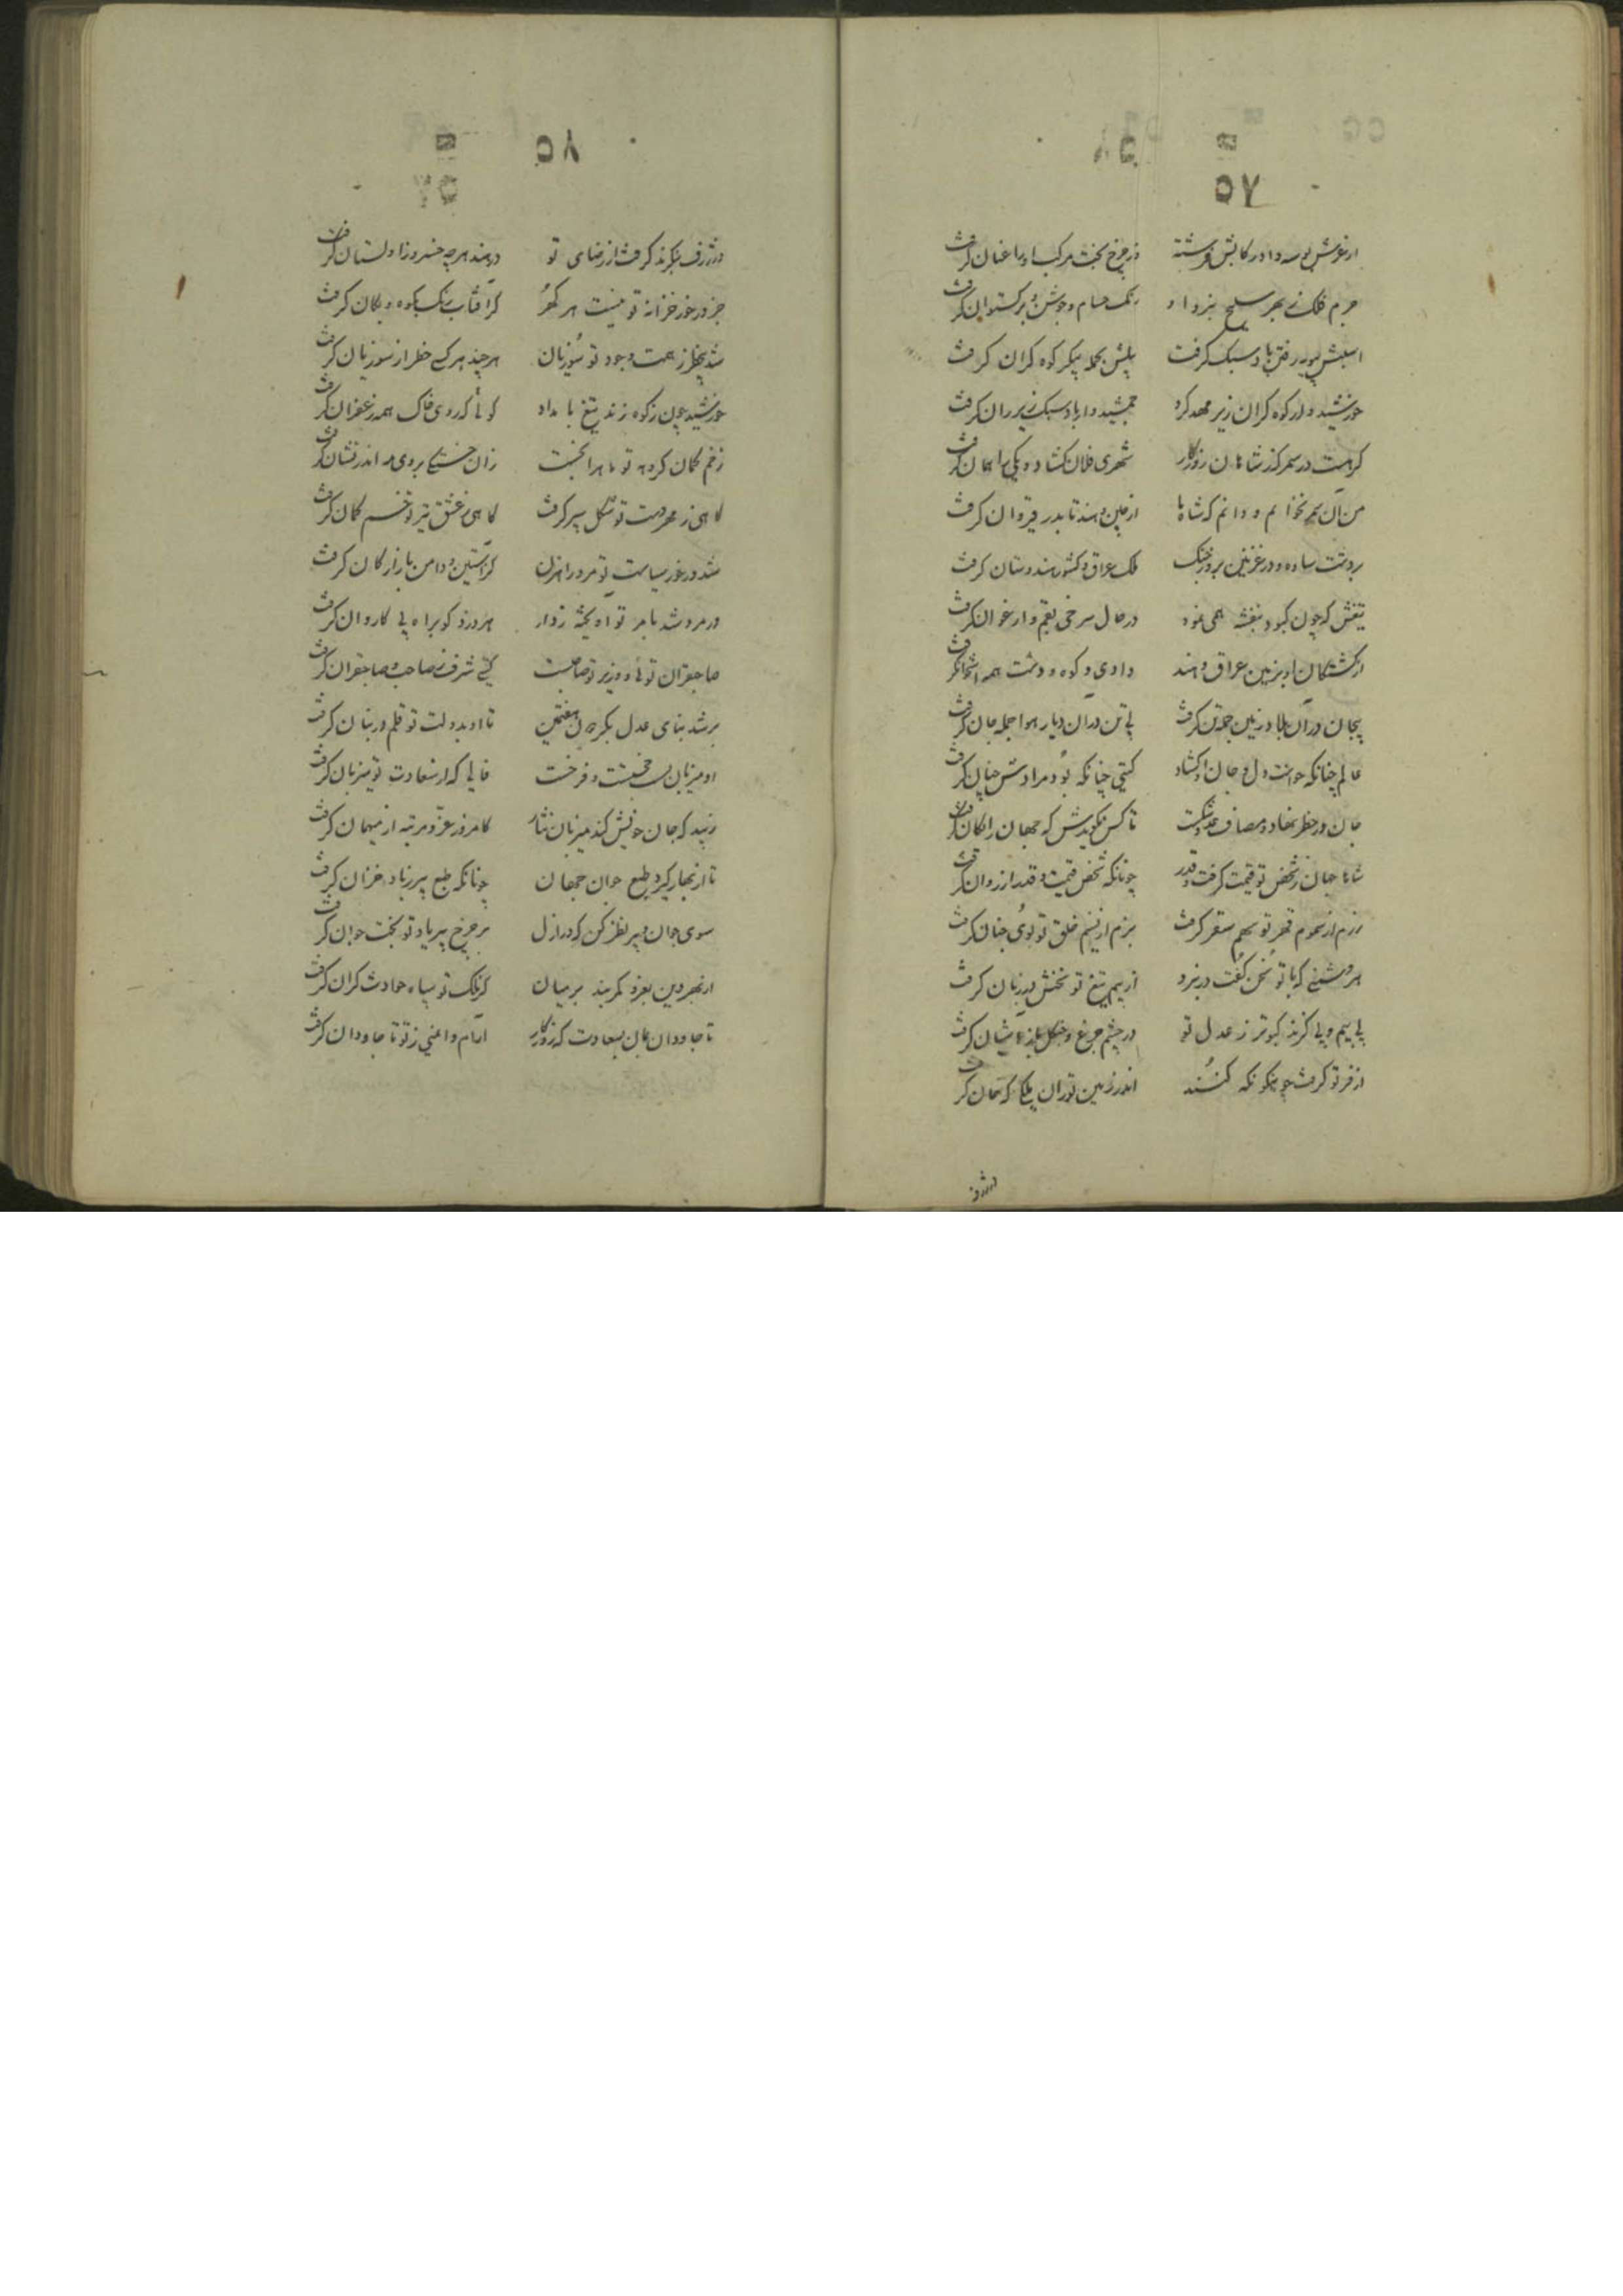 ۵۷
از عرش بوسه داد رکابش فرشته وز چرخ بخت مرکب او با عنان گرفت
جرم فلک ز بهر سلح نبرد او رنگ حسام و جوشن و برگستوان گرفت
اسبش بپویه رفتن باد سبک گرفت پیلش بحمله پیکر کوه گران گرفت
خورشید وار کوه گران زیر مهد کرد جمشید وار باد سبک زیر ران گرفت
گر هست در سمر که ز شاهان روزگار شهری فلان گشاد و یکی بهمان گرفت
من آن سمر نخوانم و دانم که شاه ما از چین و هند تا بدر قیروان گرفت
بر دشت ساوه و در غزنین بروز جنگ ملک عراق و کشور هندوستان گرفت
تیغش که چون کبود بنفشه همی نمود در حال سرخی بقم و ارغوان گرفت
از کشتگان او بزمین عراق و هند وادی و کوه و دشت همه استخوان گرفت
بیجان در آن بلاد زمین جمله تن گرفت بی تن در آن دیار هوا جمله جان گرفت
عالم چنانکه خواست دل و جان او گشاد گیتی چنانکه بود مرادش چنان گرفت
جان در خطر نهاد و مصاف عدو شکست تا کس نگویدش که جهان رایگان گرفت
شاها جهان ز شخص تو قیمت گرفت و قدر چونانکه شخص قیمت و قدر از روان گرفت
رزم از سموم قهر تو سهم سقر گرفت بزم از نسیم خلق تو بوی جنان گرفت
هر دشمنی که با تو سخن گفت در نبرد از بیم تیغ تو سخنش در زبان گرفت
بی بیم و بی گزند کبوتر ز عدل تو در چشم چرغ و چنگل باز آشیان گرفت
از فر تو گرفت چوینگونکه کنند اندر زمین توران بیلکا که خان گرفت
ور ژرف
۵۸
ور ژرف بنگرند گرفت از رضای تو در هند هر چه خسرو زاولستان گرفت
جز در خور خزانه تو نیست هر گهر کز آفتاب رنگ بکوه و بکان گرفت
شد بیخطر ز همت و جود تو سوزیان هر چند هر کسی خطر از سوزیان گرفت
خورشید چون ز کوه زند تیغ بامداد گوئی که روی خاک همه زعفران گرفت
زخم کمان گروهه تو ماه را بخست زان خستگی بروی مه اندر نشان گرفت
گاهی ز مهر دست تو شکل سپر گرفت گاهی ز عشق تیر تو خم کمان گرفت
شد در خور سیاست تو مرد راهزن کز آستین و دامن بازارگان گرفت
در مرو شد بامر تو آویخته ز دار هر دزد کو براه پی کاروان گرفت
صاحبقران توئی و وزیر تو صاحبست گیتی شرف ز صاحب و صاحبقران گرفت
بر شد بنای عدل بگردون هفتمین تا او بدولت تو قلم در بنان گرفت
او میزبان بس خجسته و فرخست فالی که از سعادت تو میزبان گرفت
زیبد که جان خویش کند میزبان نثار کامروز عز و مرتبه از میهمان گرفت
تا از بهار گیرد طبع جوان جهان چونانکه طبع پیر ز باد خزان گرفت
سوی جوان و پیر نظر کن که در ازل بر چرخ پیر یاد تو بخت جوان گرفت
از بهر دین بغزو کمر بند بر میان کز ملک تو سپاه حوادث کران گرفت
تا جاودان بمان بسعادت که روزگار آرام و ایمنی ز تو تا جاودان گرفت